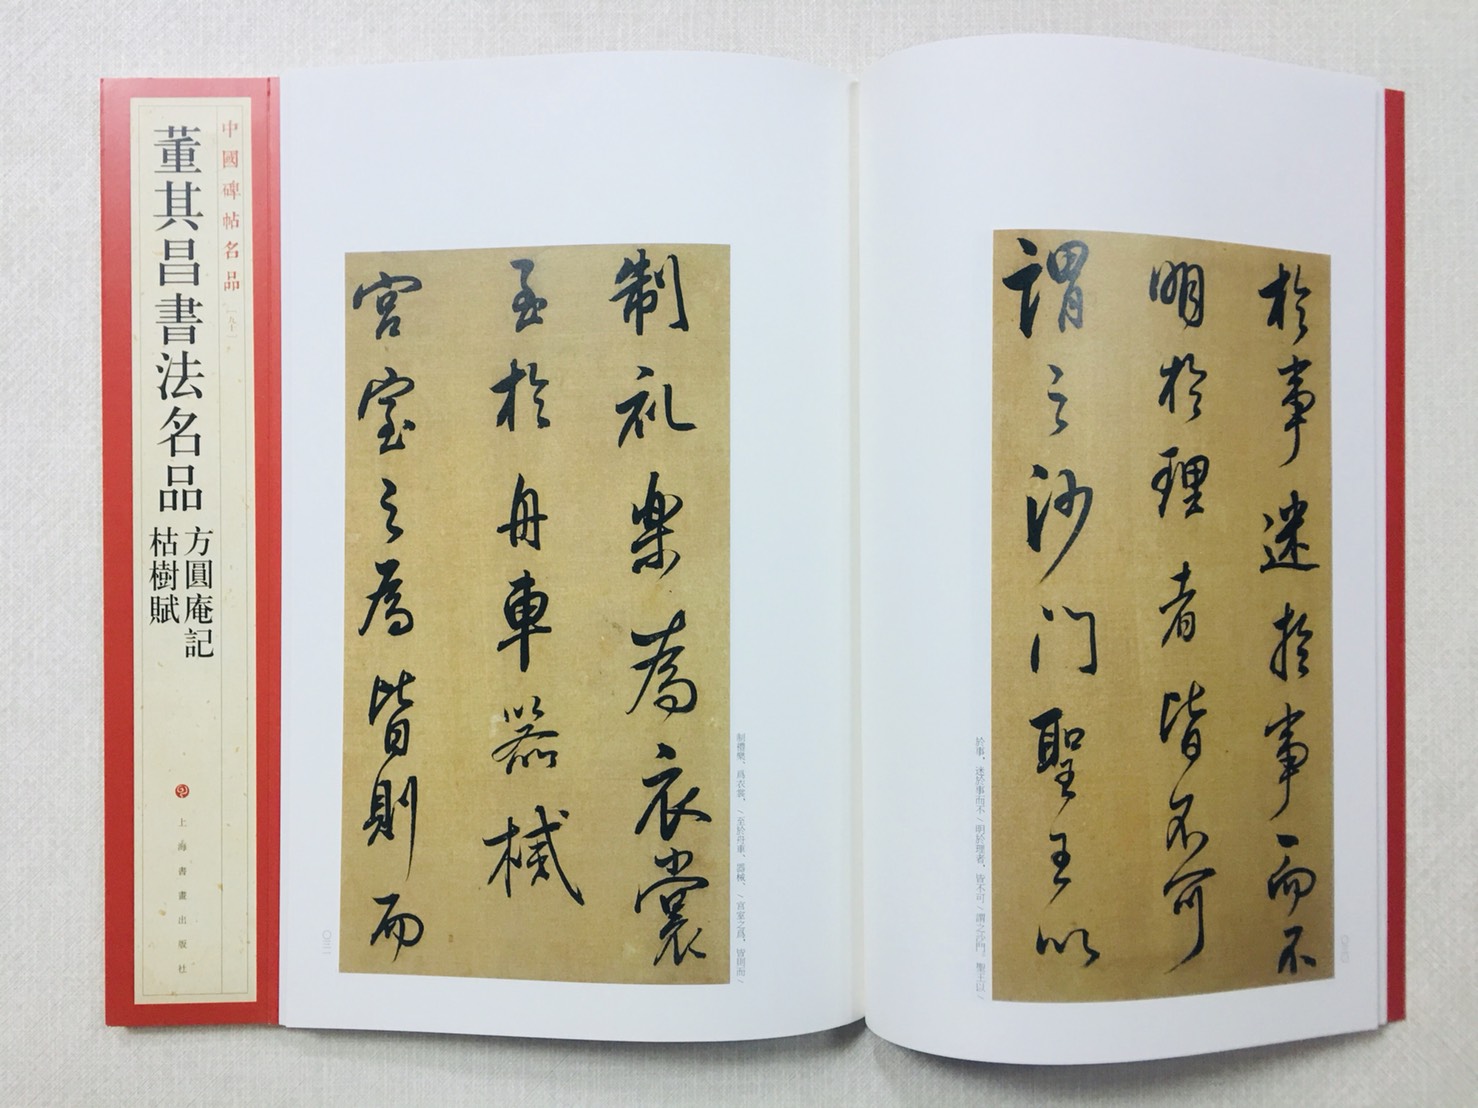 中國碑帖名品
[九十一]
董其昌書法名品
方圓庵記
枯樹賦
上海書畫出版社
於事迷於事而不
明於理者皆不可
謂之沙门聖王以
於事、迷於事而不/明於理者、皆不可/謂之沙門。聖王以/
制礼樂為衣裳
至於舟車器械
宮室之為皆則而
制禮樂、爲衣裳、/至於舟車、器械、/宮室之爲、皆則而/